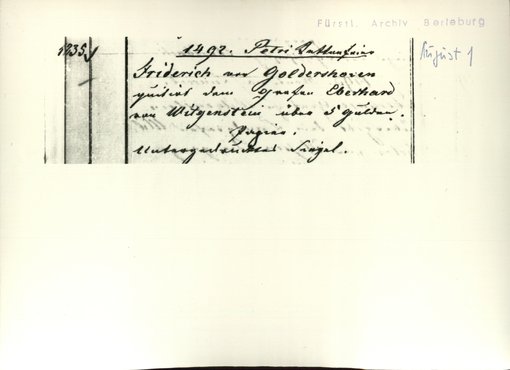 Fürstl. Archiv Berleburg
August 1
1235
1492. Petri Kettenfeier
Friderich von Goldershoven
quitirt dem Grafen Eberhard
von Witgenstein über 5 Gulden.
Papier.
Untergedrucktes Siegel.